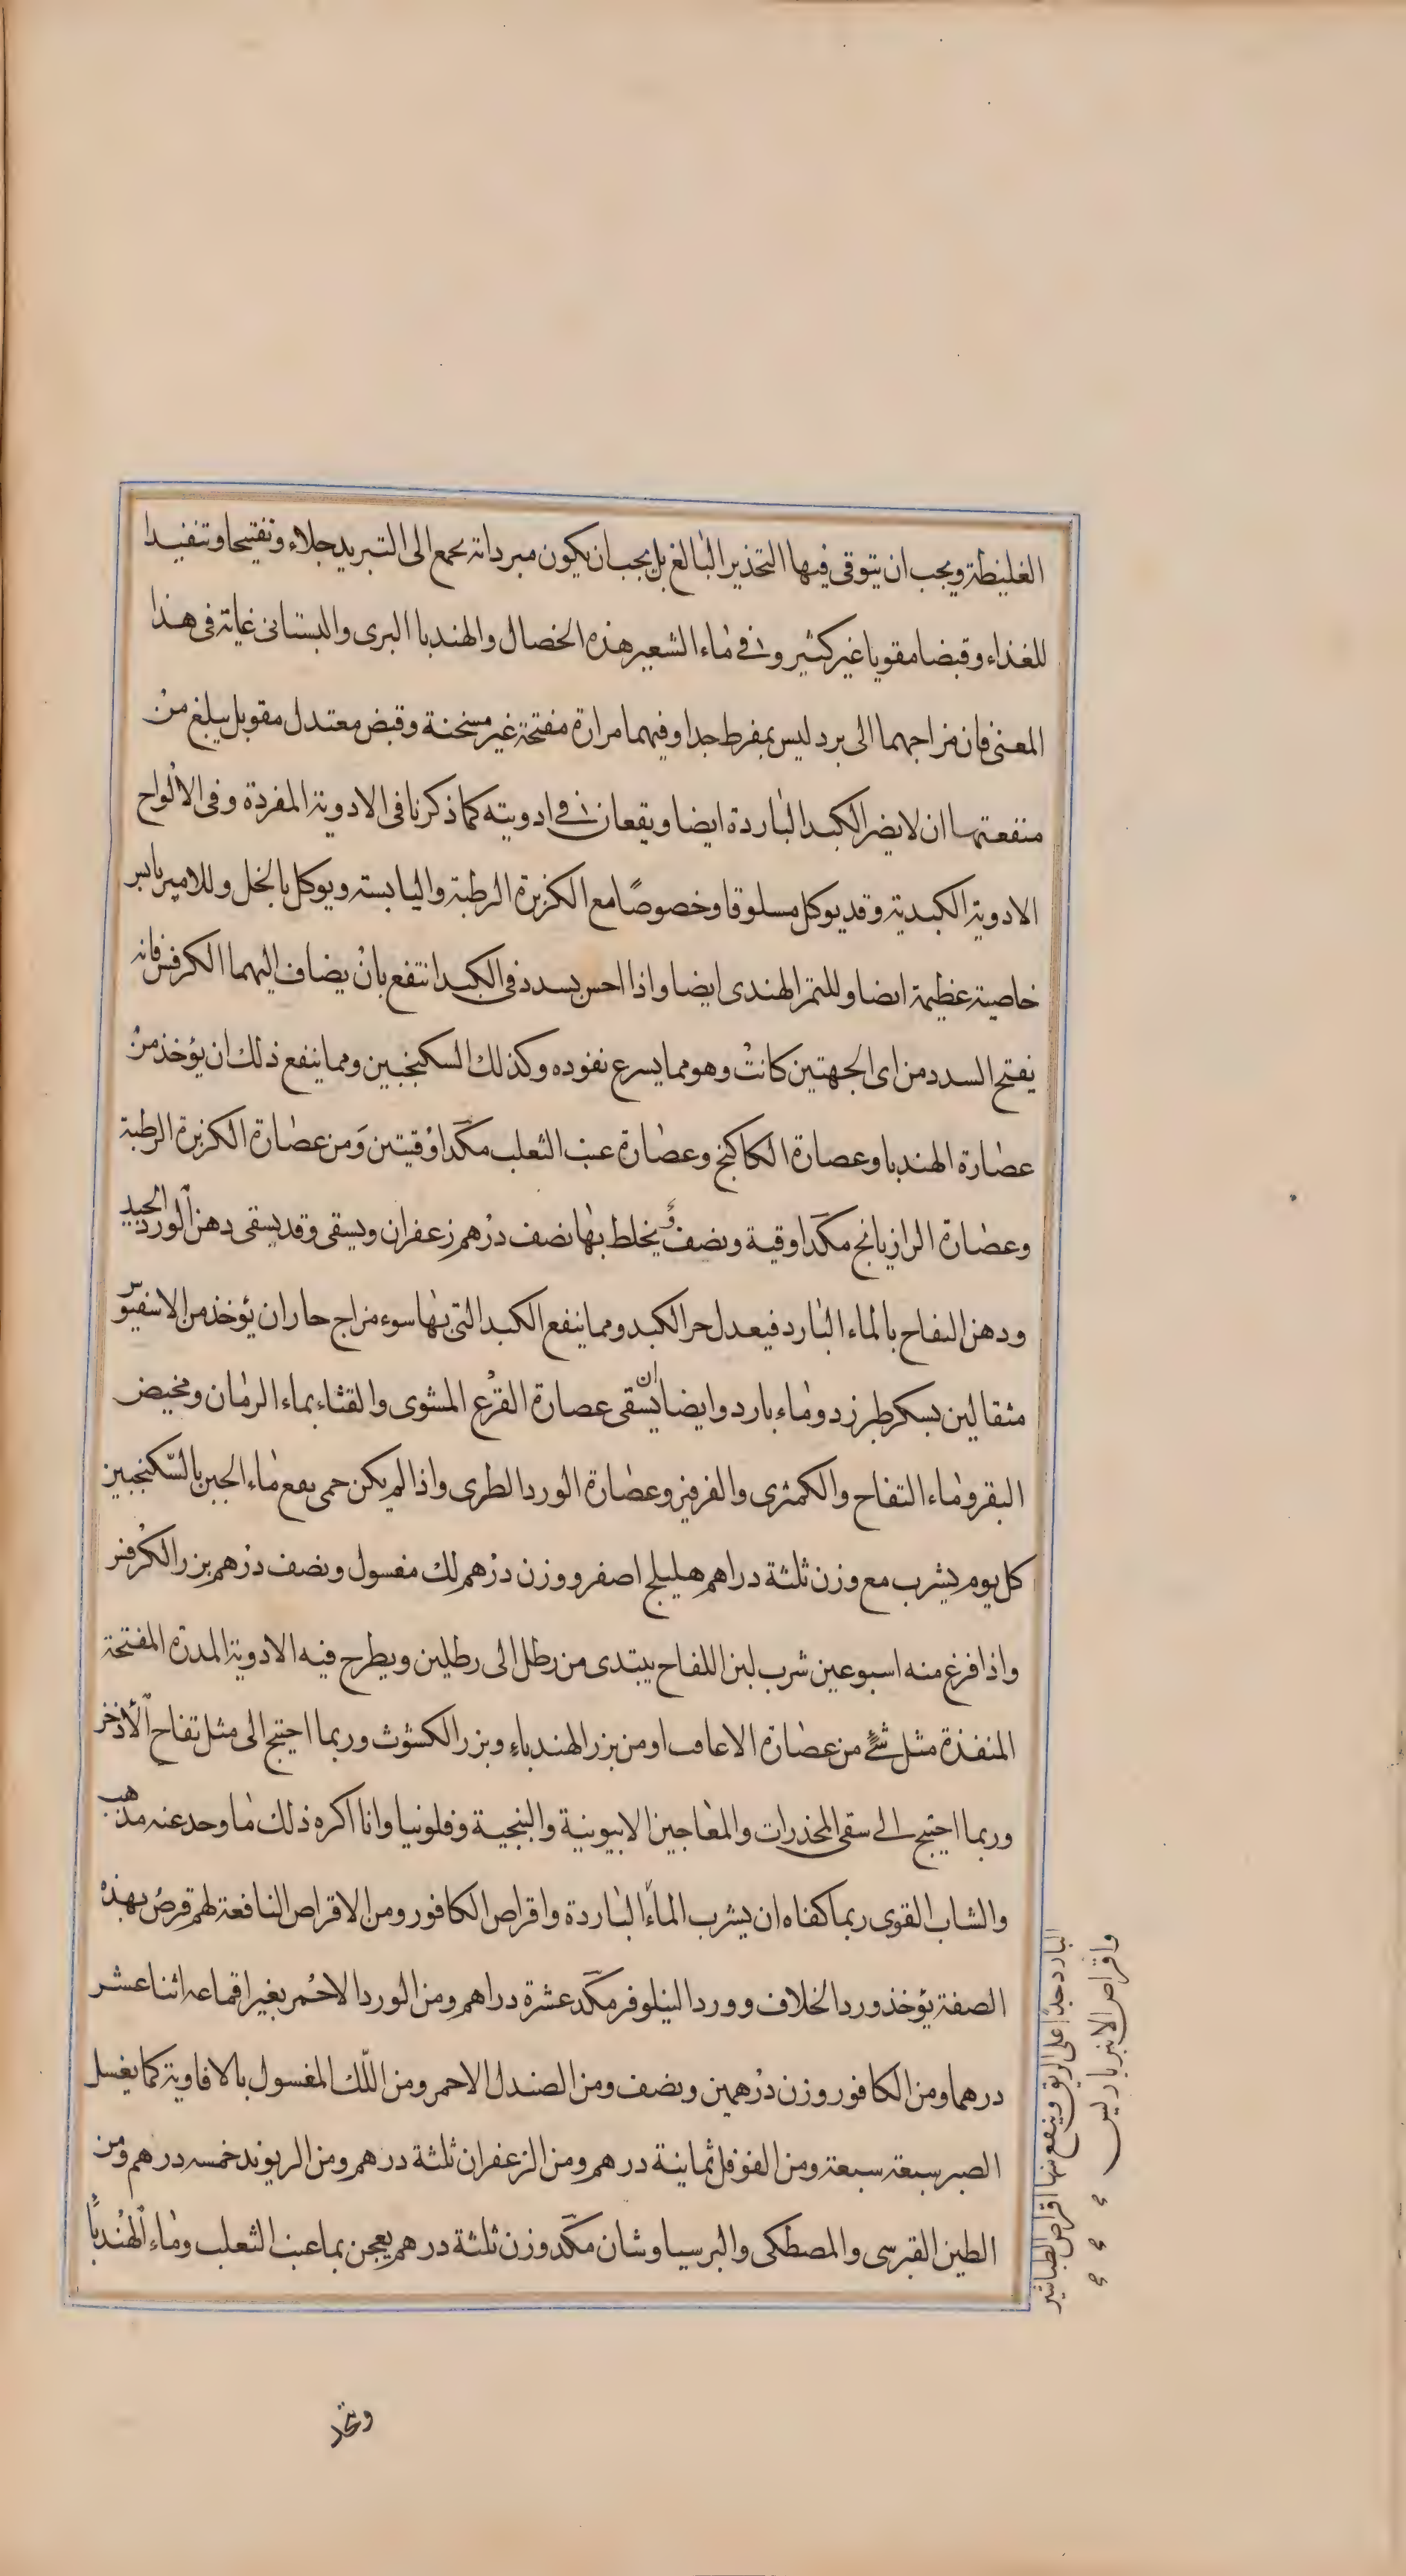 الغليظة ويجب ان يتوقى فيها التخذير البالغ بل يجب ان يكون مبرداته يجمع الى التبريد جلاء وتفتيحا وتنفيدا
للغذاء وقبضا مقويا غير كثير وفى ماء الشعير هذه الخصال والهندبا البرى والبستانى غاية فى هذا
المعنى فان مزاجهما الى برد ليس بمفرط جدا وفيهما مرارة مفتحة غير مسخنة وقبض معتدل مقو بل يبلغ من
منفعتهما ان لا يضر الكبد الباردة ايضا ويقعان فى ادويته كما ذكرنا فى الادوية المفردة وفى الالواح
الادوية الكبدية وقد يوكل مسلوقا وخصوصًا مع الكزبرة الرطبة واليابسته ويوكل بالخل وللامبرباريس
خاصية عظيمة ايضا وللتمر الهندى ايضا واذا احس بسدد فى الكبد انتفع بان يضاف اليهما الكرفس فانه
يفتح السدد من اى الجهتين كانت وهو مما يسرع نفوده وكذلك السكنجبين ومما ينفع ذلك ان يؤخذ من
عصارة الهندبا وعصارة الكاكنج وعصارة عنب الثعلب مكدا وقيتين ومن عصارة الكزبرة الرطبة
وعصارة الرازيانج مكدا وقية ونصف ويخلط بها نصف درهم زعفران ويسقى وقد يسقى دهن الورد الجيد
ودهن التفاح بالماء البارد فيعدل حر الكبد ومما ينفع الكبد التى بها سوء مزاج حار ان يؤخذ من الاسفيوس
مثقالين بسكر طبرزد وماء بارد وايضا ان يسقى عصارة القرع المشوى والقثاء بماء الرمان ومخيض
البقر وماء التفاح والكمثرى والفرفير وعصارة الورد الطرى واذا لم يكن حمى نفع ماء الجبن بالسكنجبين
كل يوم يشرب مع وزن ثلثة دراهم هليلج اصفر ووزن درهم لك مغسول ونصف درهم بزر الكرفس
واذا فرغ منه اسبوعين شرب لبن اللقاح يبتدى من رطل الى رطلين ويطرح فيه الادوية المدرة المفتحة
المنفذة مثل شئ من عصارة الاغافت او من بزر الهندباء وبزر الكشوث وربما احتيج الى مثل تفاح الأذخر
وربما احتيج الى سقى المخذرات والمعاجين الابيونية والبنجية وفلونيا وانا اكره ذلك ما وجد عنه مذهب
والشاب القوى ربما كفاه ان يشرب الماء الباردة واقراص الكافور ومن الاقراص النافعة لهم قرص بهذه
الصفة يؤخذ ورد الخلاف وورد النيلوفر مكد عشرة دراهم ومن الورد الاحمر بغير اقماعه اثنا عشر
درهما ومن الكافور وزن درهمين ونصف ومن الصندل الاحمر ومن اللك المغسول بالافاوية كما يغسل
الصبر سبعة سبعة ومن الفوفل ثمانية درهم ومن الزعفران ثلثة درهم ومن الريوند خمسه درهم ومن
الطين القبرسى والمصطكى والبرسياوشان مكد وزن ثلثة درهم يعجن بما عنب الثعلب وماء الهندبا
البارد جدا على الريق وينفع منها اقراص الطباشير
واقراص الانبرباريس